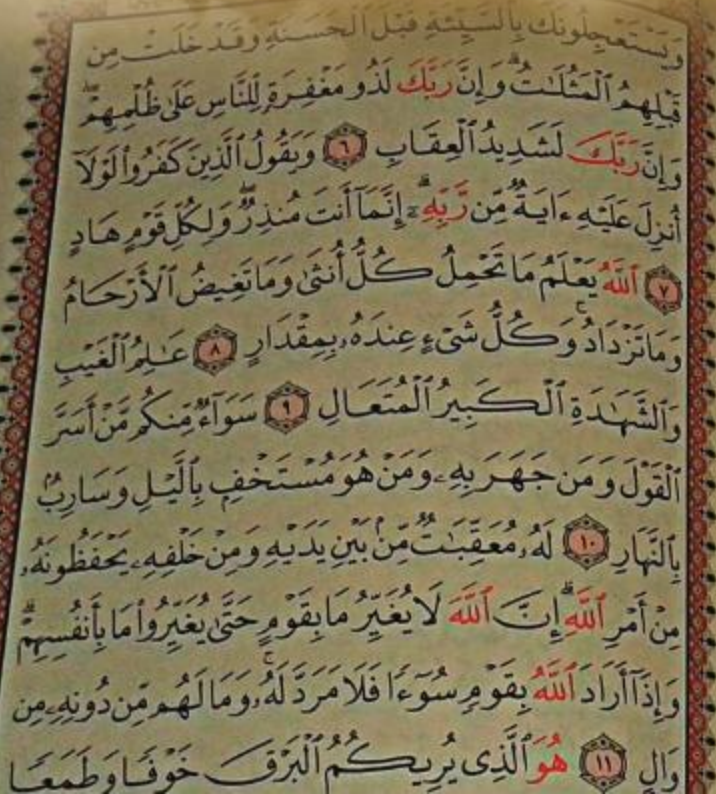 وَيَسْتَعْجِلُونَكَ بِالسَّيِّئَةِ قَبْلَ الْحَسَنَةِ وَقَدْ خَلَتْ مِن
قَبْلِهِمُ ٱلْمَثُلَٰتُ ۗ وَإِنَّ رَبَّكَ لَذُو مَغْفِرَةٍ لِّلنَّاسِ عَلَىٰ ظُلْمِهِمْ ۖ
وَإِنَّ رَبَّكَ لَشَدِيدُ ٱلْعِقَابِ ٦ وَيَقُولُ ٱلَّذِينَ كَفَرُوا۟ لَوْلَآ
أُنزِلَ عَلَيْهِ ءَايَةٌ مِّن رَّبِّهِۦٓ ۗ إِنَّمَآ أَنتَ مُنذِرٌ ۖ وَلِكُلِّ قَوْمٍ هَادٍ
٧ ٱللَّهُ يَعْلَمُ مَا تَحْمِلُ كُلُّ أُنثَىٰ وَمَا تَغِيضُ ٱلْأَرْحَامُ
وَمَا تَزْدَادُ ۚ وَكُلُّ شَىْءٍ عِندَهُۥ بِمِقْدَارٍ ٨ عَٰلِمُ ٱلْغَيْبِ
وَٱلشَّهَٰدَةِ ٱلْكَبِيرُ ٱلْمُتَعَالِ ٩ سَوَآءٌ مِّنكُم مَّنْ أَسَرَّ
ٱلْقَوْلَ وَمَن جَهَرَ بِهِۦ وَمَنْ هُوَ مُسْتَخْفٍۭ بِٱلَّيْلِ وَسَارِبٌۢ
بِٱلنَّهَارِ ١٠ لَهُۥ مُعَقِّبَٰتٌ مِّنۢ بَيْنِ يَدَيْهِ وَمِنْ خَلْفِهِۦ يَحْفَظُونَهُۥ
مِنْ أَمْرِ ٱللَّهِ ۗ إِنَّ ٱللَّهَ لَا يُغَيِّرُ مَا بِقَوْمٍ حَتَّىٰ يُغَيِّرُوا۟ مَا بِأَنفُسِهِمْ ۗ
وَإِذَآ أَرَادَ ٱللَّهُ بِقَوْمٍ سُوٓءًا فَلَا مَرَدَّ لَهُۥ ۚ وَمَا لَهُم مِّن دُونِهِۦ مِن
وَالٍ ١١ هُوَ ٱلَّذِى يُرِيكُمُ ٱلْبَرْقَ خَوْفًا وَطَمَعًا